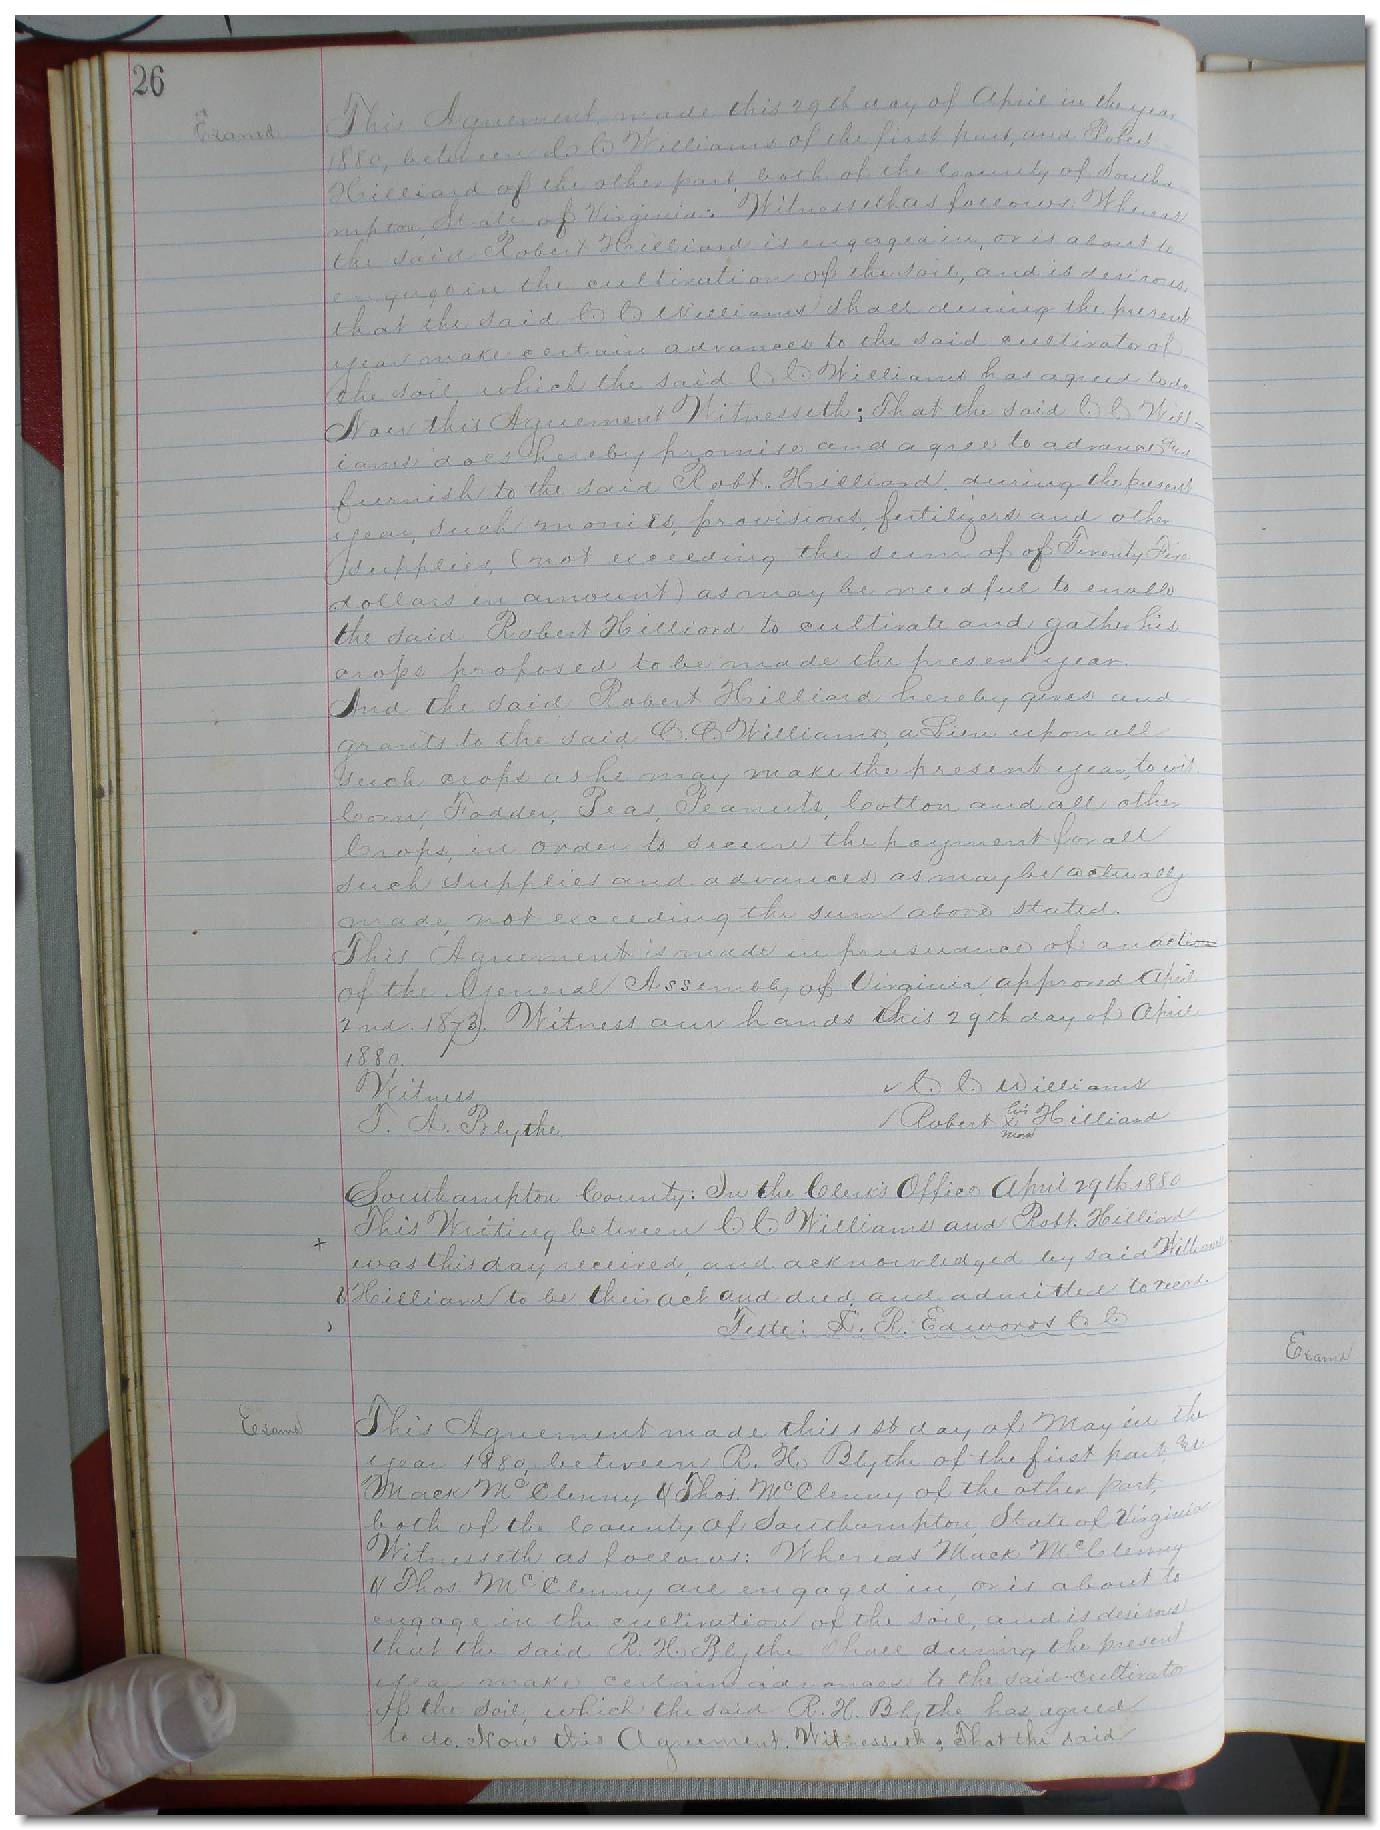 26
Examd
This Agreement made this 29th day of April in the year
1880, between C C Williams of the first part, and Robert
Hilliard of the other part, both of the County of Southa
mpton, State of Virginia: Witnesseth as follows: Whereas
the said Robert Hilliard is engaged in, or is about to
engage in the cultivation of the soil, and is desirous
that the said C C Williams shall during the present
year make certain advances to the said cultivator of
the soil, which the said C C Williams has agreed to do
Now this Agreement Witnesseth; That the said C C Will=
iams does hereby promise and agree to advance and
furnish to the said Robt. Hilliard, during the present
year, such monies, provisions, fertilizers and other
supplies, (not exceeding the sum of of Twenty Five
dollars in amount) as may be needful to enable
the said Robert Hilliard to cultivate and gather his
crops proposed to be made the present year.
And the said Robert Hilliard hereby gives and
grants to the said C. C. Williams, a Lien upon all
such crops as he may make the present year, to wit
Corn, Fodder, Peas, Peanuts, Cotton and all other
Crops, in order to secure the payment for all
such supplies and advances as may be actually
made, not exceeding the sum above stated.
This Agreement is made in pursuance of an
of the General Assembly of Virginia, approved April
2nd 1873. Witness our hands this 29th day of April
1880.
Witness C C Williams
T. A. Blythe. Robert his X mark Hilliard
Southampton County: In the Clerk's Office April 29th 1880
This Writing between C C Williams and Robt. Hilliard
+ was this day received, and acknowledged by said Williams
& Hilliard to be their act and deed, and admitted to record.
Teste: L. R. Edwards C C
Examd
Examd
This Agreement made this 1st day of May in the
year 1880, between R. H. Blythe of the first part, and
Mack McClenny & Thos. McClenny of the other part,
both of the County of Southampton, State of Virginia
Witnesseth as follows: Whereas Mack McClenny
& Thos. McClenny are engaged in, or is about to
engage in the cultivation of the soil, and is desirous
that the said R. H. Blythe shall during the present
year make certain advances to the said cultivator
of the soil, which the said R. H. Blythe has agreed
to do. Now this Agreement, Witnesseth; That the said